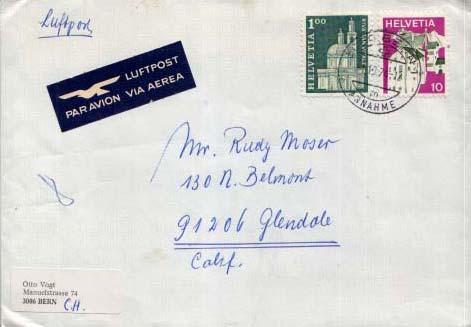 Luftpost
LUFTPOST
PAR AVION VIA AEREA
HELVETIA 1.00
HELVETIA
10
ANNAHME
Mr. Rudy Moser
130 N. Belmont
91206 Glendale
Calif.
Otto Vogt
Manuelstrasse 74
3006 BERN C.H.